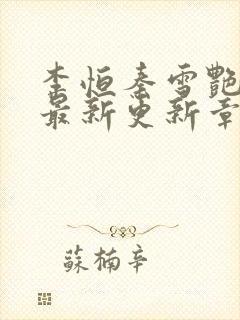 李恒秦雪艷
最新更新章
蘇楠辛